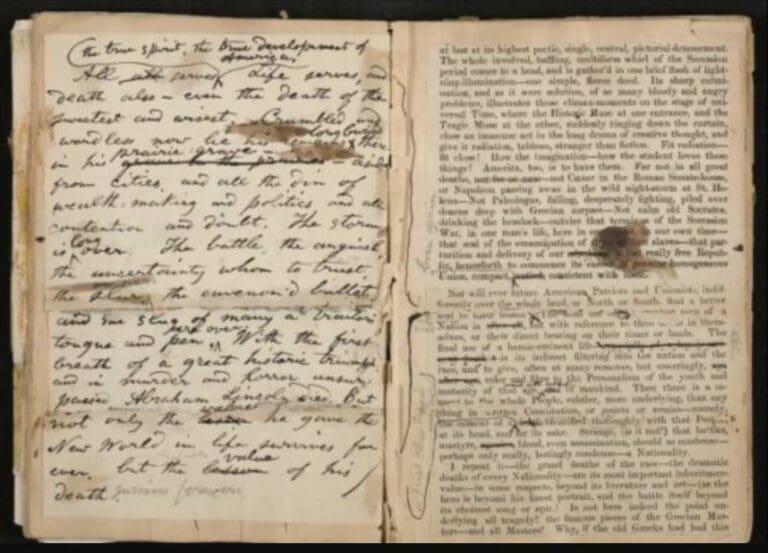 the true spirit, the true development of
America.
All serves, Life serves, and
death also — even the death of the
sweetest and wisest. Crumbled and
wordless now lie his remains long buried there
in his prairie grave — aside
from cities, and all the din of
wealth-making and politics and all
contention and doubt. The storm
is long over. The battle the anguish
the uncertainty whom to trust,
the slur, the envenom'd bullet,
and the slug of many a traitor's
tongue and pen are over. With the first
breath of a great historic triumph
and in murder and horror unsur-
passed Abraham Lincoln died. But
not only the value he gave the
New World in life survives for
ever, but the value of his
death survives forever
at last at its highest poetic, single, central, pictorial denouement.
The whole involved, baffling, multiform whirl of the Secession
period comes to a head, and is gather'd in one brief flash of light-
ning-illumination—one simple, fierce deed. Its sharp culmi-
nation, and as it were solution, of so many bloody and angry
problems, illustrates those climax-moments on the stage of uni-
versal Time, where the Historic Muse at one entrance, and the
Tragic Muse at the other, suddenly ringing down the curtain,
close an immense act in the long drama of creative thought, and
give it radiation, tableau, stranger than fiction. Fit radiation—
fit close! How the imagination—how the student loves these
things! America, too, is to have them. For not in all great
deaths, not far or near—not Cæsar in the Roman Senate-house,
or Napoleon passing away in the wild night-storm at St. He-
lena—Not Paleologus, falling, desperately fighting, piled over
dozens deep with Grecian corpses—Not calm old Socrates,
drinking the hemlock—outvies that terminus of the Secession
War, in one man's life, here in our own time—
that seal of the emancipation of slaves—that par-
turition and delivery of our really free Repub-
lic, henceforth to commence its career of homogeneous
Union, compact, consistent with itself.
Nor will ever future American Patriots and Unionists, indif-
ferently over the whole land, or North or South, find a better
moral to their lesson. The final use of a
Nation is after all, not with reference to them in them-
selves, or their direct bearing on their times or lands. The
final use of a heroic-eminent life
is its indirect filtering into the nation and the
race, and to give, often at many removes, but unerringly,
color and fibre to the Personalism of the youth and
maturity of that age, and of mankind. Then there is a ce-
ment to the whole People, subtler, more underlying, than any
thing in written Constitution, or courts or armies—namely,
the cement of a death identified thoroughly with that People,
at its head, and for its sake. Strange, (is it not?) that battles,
martyrs, blood, even assassination, should so condense—
perhaps only really, lastingly condense—a Nationality.
I repeat it—the grand deaths of the race—the dramatic
deaths of every Nationality—are its most important inheritance-
value—in some respects, beyond its literature and art—(as the
hero is beyond his finest portrait, and the battle itself beyond
its choicest song or epic.) Is not here indeed the point un-
derlying all tragedy? the famous pieces of the Grecian Mas-
ters—and all Masters? Why, if the old Greeks had had this